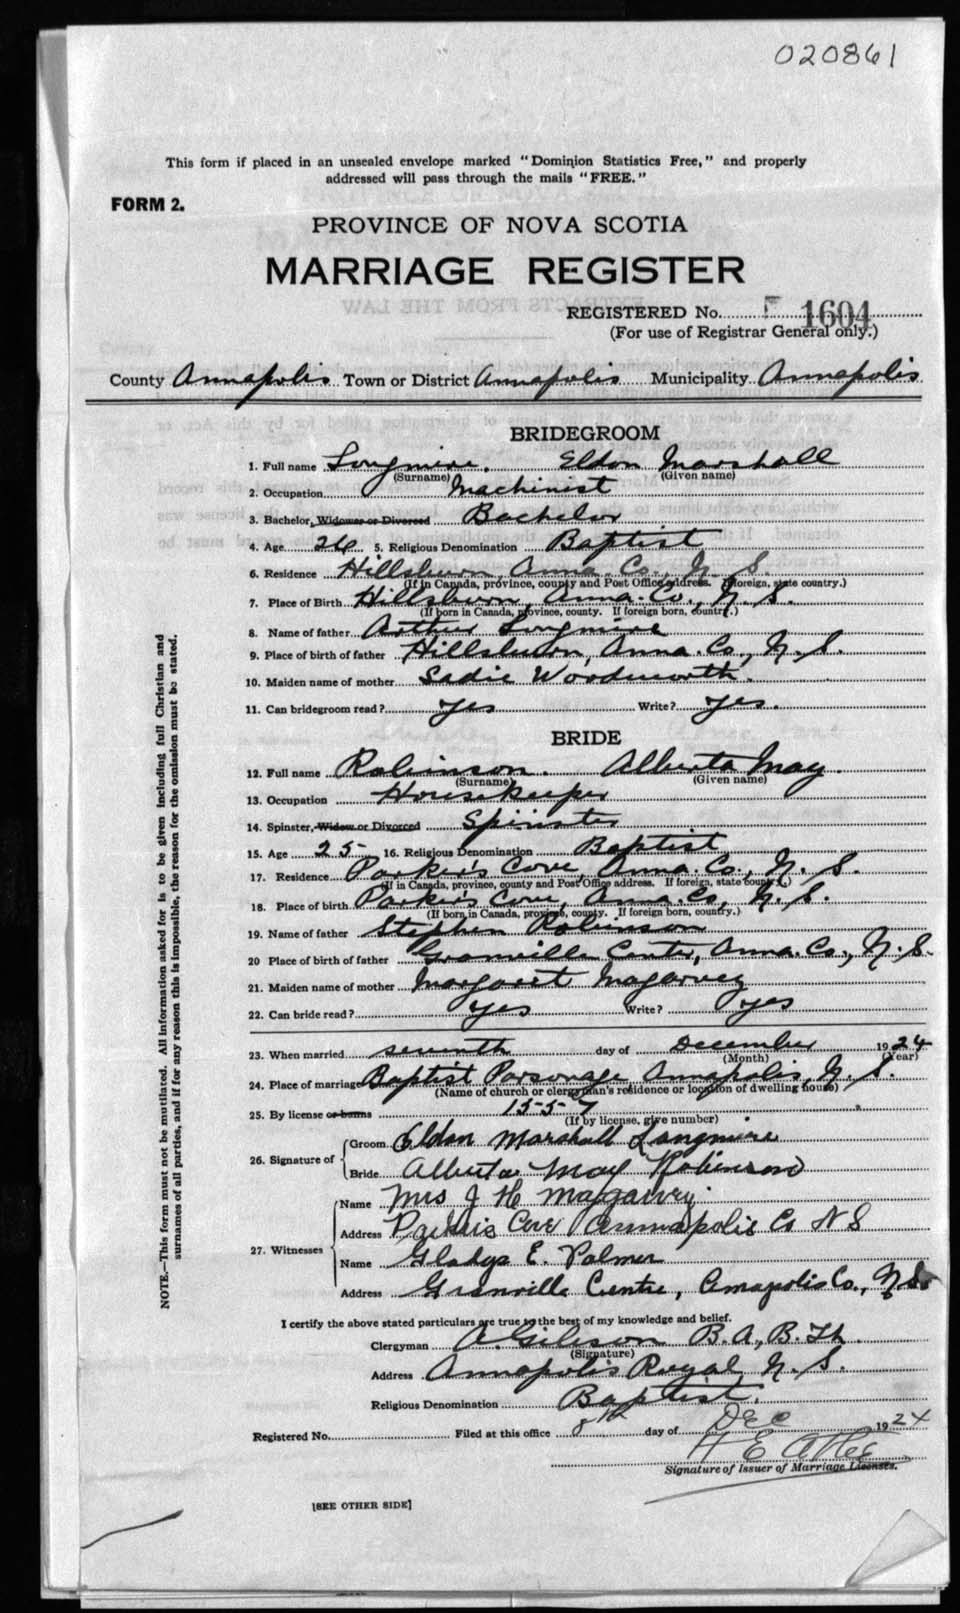 020861
This form if placed in an unsealed envelope marked "Dominion Statistics Free," and properly
addressed will pass through the mails "FREE."
FORM 2.
PROVINCE OF NOVA SCOTIA
MARRIAGE REGISTER
REGISTERED No. 1604
(For use of Registrar General only.)
County Annapolis Town or District Annapolis Municipality Annapolis
BRIDEGROOM
1. Full name Longmire. Eldon Marshall
(Surname) (Given name)
2. Occupation Machinist
3. Bachelor, Widower or Divorced Bachelor
4. Age 26 5. Religious Denomination Baptist
6. Residence Hillsburn, Anna. Co., N. S.
(If in Canada, province, county and Post Office address. If foreign, state country.)
7. Place of Birth Hillsburn, Anna. Co., N. S.
(If born in Canada, province, county. If foreign born, country.)
8. Name of father Arthur Longmire
9. Place of birth of father Hillsburn, Anna. Co., N. S.
10. Maiden name of mother Sadie Woodworth.
11. Can bridegroom read? yes Write? yes.
BRIDE
12. Full name Robinson. Alberta May.
(Surname) (Given name)
13. Occupation Housekeeper
14. Spinster, Widow or Divorced Spinster
15. Age 25 16. Religious Denomination Baptist
17. Residence Parker's Cove, Anna. Co., N. S.
(If in Canada, province, county and Post Office address. If foreign, state country.)
18. Place of birth Parker's Cove, Anna. Co., N. S.
(If born in Canada, province, county. If foreign born, country.)
19. Name of father Stephen Robinson
20 Place of birth of father Granville Centre, Anna. Co., N. S.
21. Maiden name of mother Margaret Magarvey
22. Can bride read? yes Write? yes
23. When married seventh day of December 1924
(Month) (Year)
24. Place of marriage Baptist Parsonage Annapolis, N. S.
(Name of church or clergyman's residence or location of dwelling house)
25. By license or banns 1557
(If by license, give number)
26. Signature of Groom Eldon Marshall Longmire
Bride Alberta May Robinson
27. Witnesses Name Mrs J H Magarvey
Address Parkers Cove Annapolis Co N S
Name Gladys E. Palmer
Address Granville Centre, Annapolis Co., N.S.
I certify the above stated particulars are true to the best of my knowledge and belief.
Clergyman A. Gibson B.A., B.Th.
(Signature)
Address Annapolis Royal N. S.
Religious Denomination Baptist.
Registered No. Filed at this office 8th day of Dec 1924
H E
Signature of Issuer of Marriage Licenses.
[SEE OTHER SIDE]
NOTE.—This form must not be mutilated. All information asked for is to be given including full Christian and
surnames of all parties, and if for any reason this is impossible, the reason for the omission must be stated.